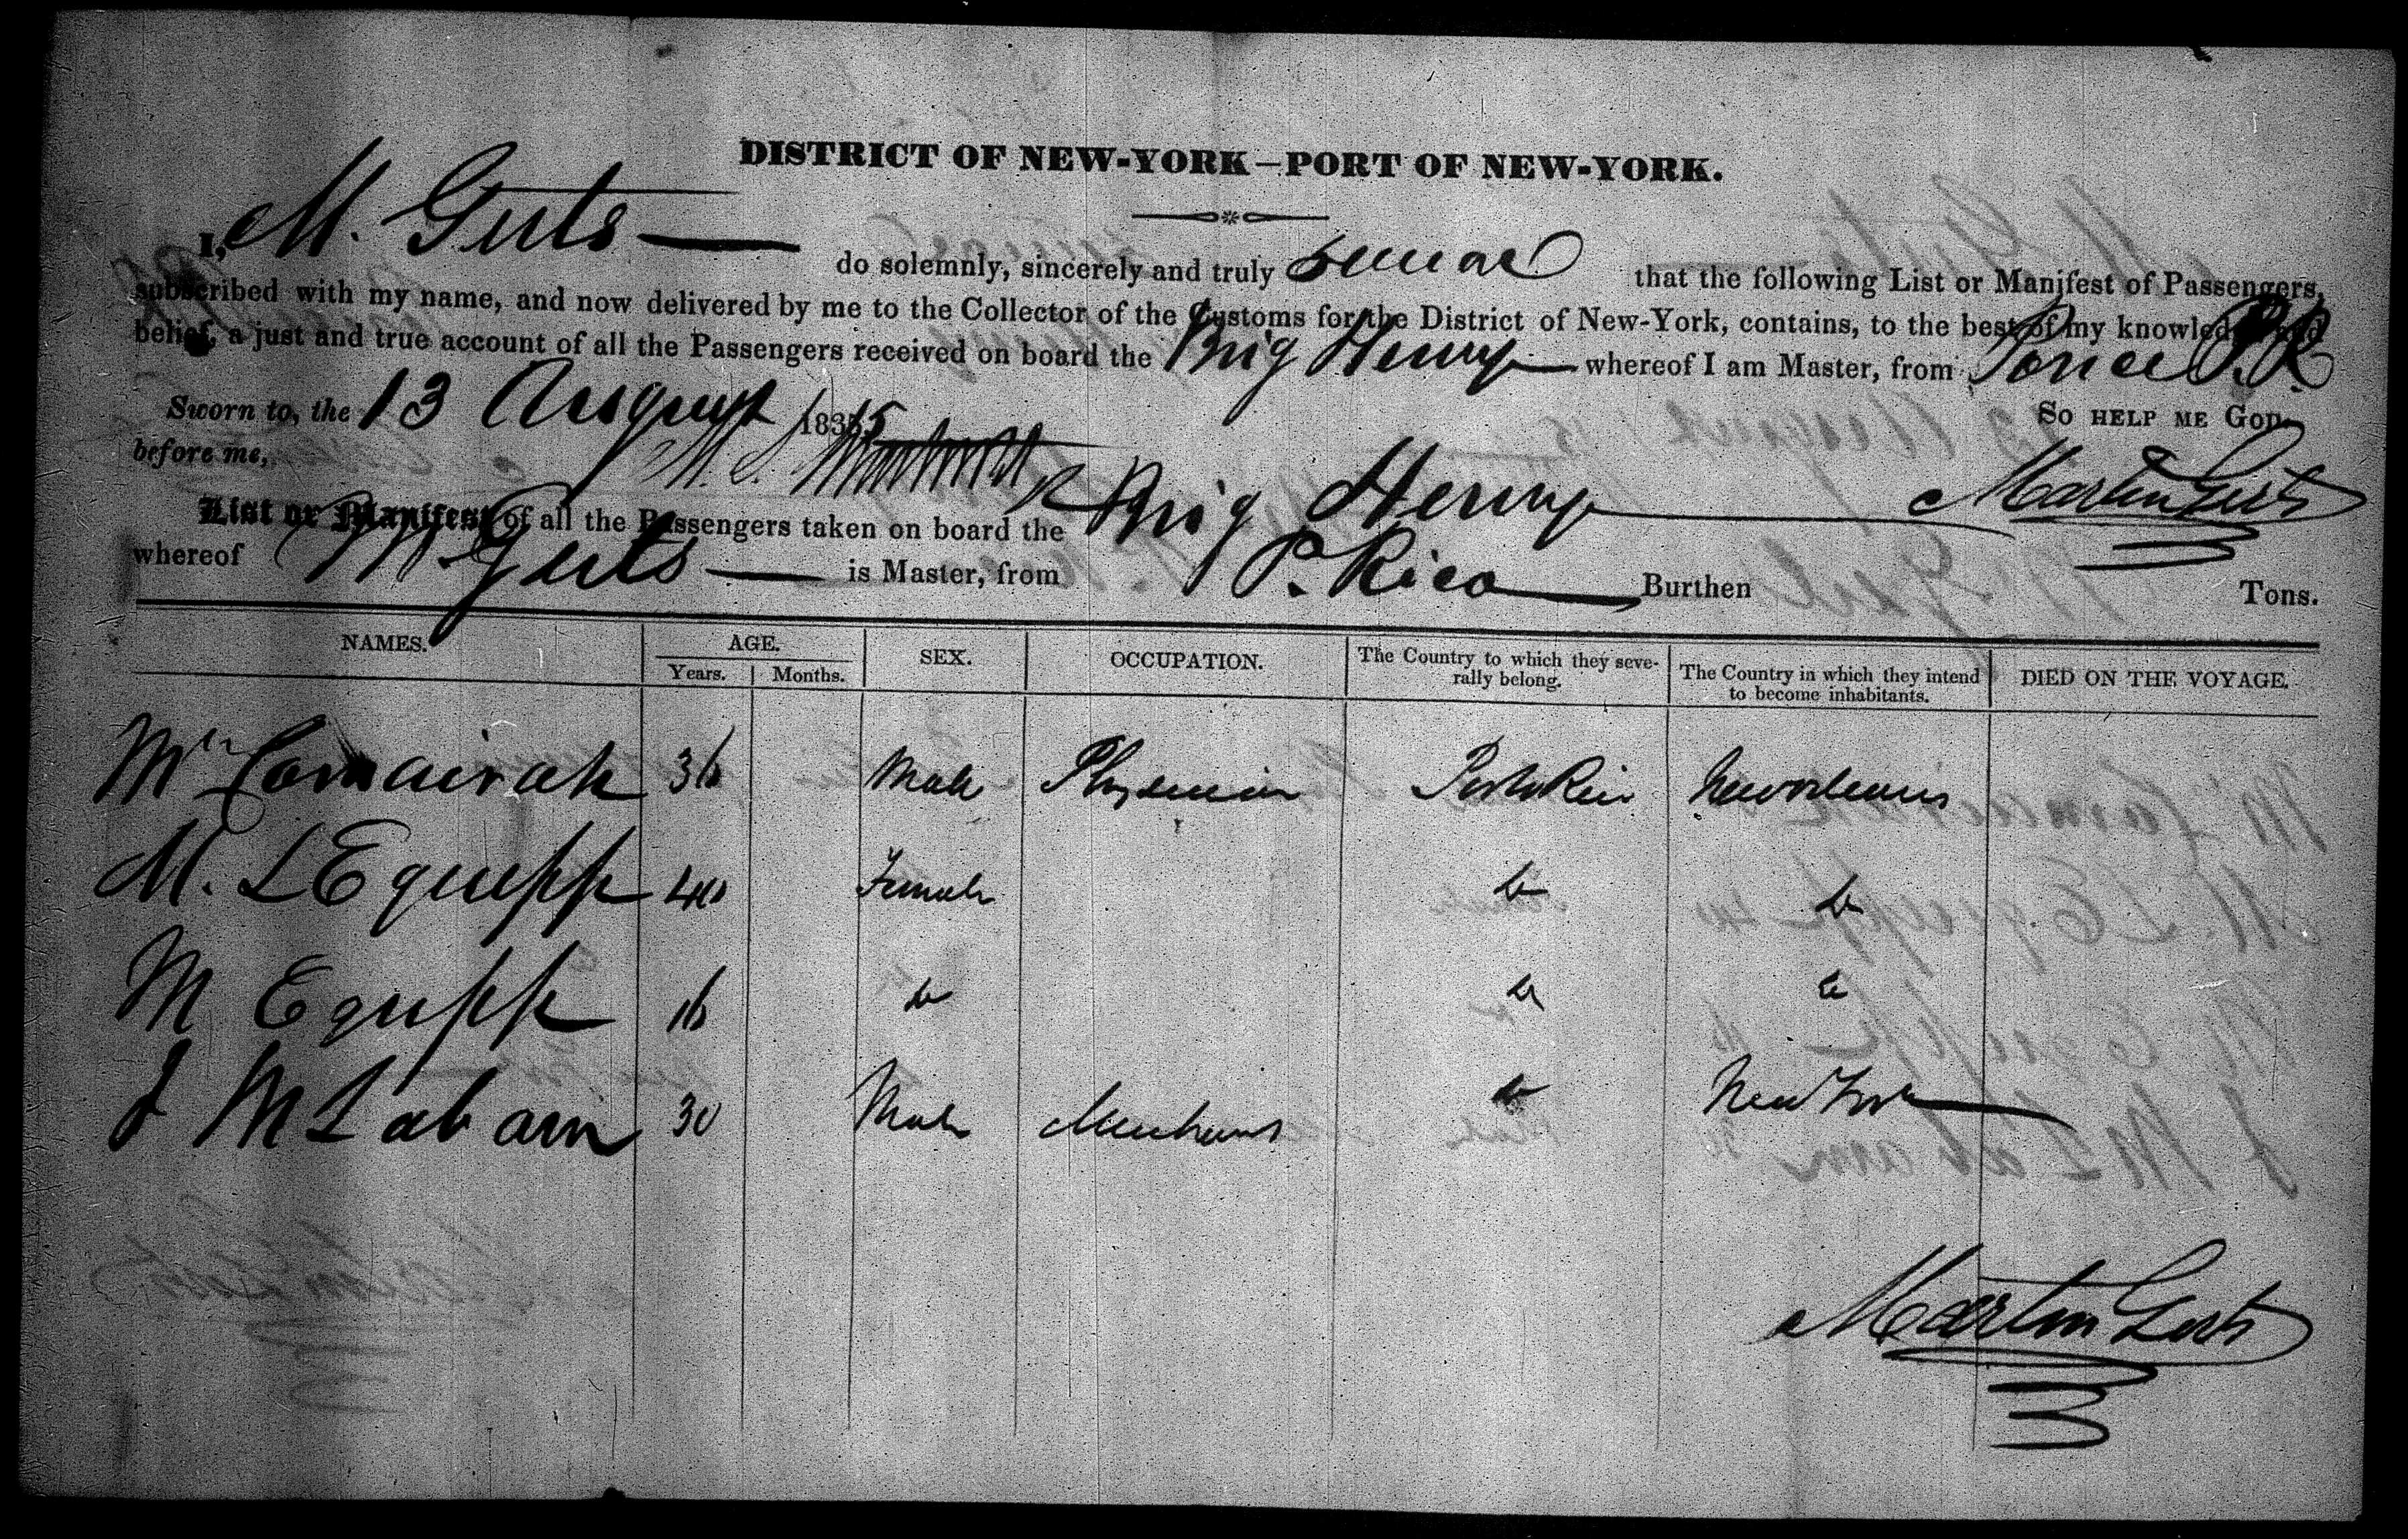 DISTRICT OF NEW-YORK—PORT OF NEW-YORK.
I, M. Guts do solemnly, sincerely and truly swear that the following List or Manifest of Passengers,
subscribed with my name, and now delivered by me to the Collector of the Customs for the District of New-York, contains, to the best of my knowledge and
belief, a just and true account of all the Passengers received on board the Brig Henry whereof I am Master, from Ponce P.R
Sworn to, the 13 August 1835 So HELP ME GOD.
before me,
Martin Guts
List or Manifest of all the Passengers taken on board the Brig Henry
whereof M Guts is Master, from P. Rico Burthen Tons.
NAMES. AGE. SEX. OCCUPATION. The Country to which they seve-rally belong. The Country in which they intend to become inhabitants. DIED ON THE VOYAGE.
Years. Months.
Mr 36 Male Physician Porto Rico New orleans
M. LEquepp 40 Female Do Do
M Equepp 16 Do Do Do
J M Labarn 30 Male Do New York
Martin Guts